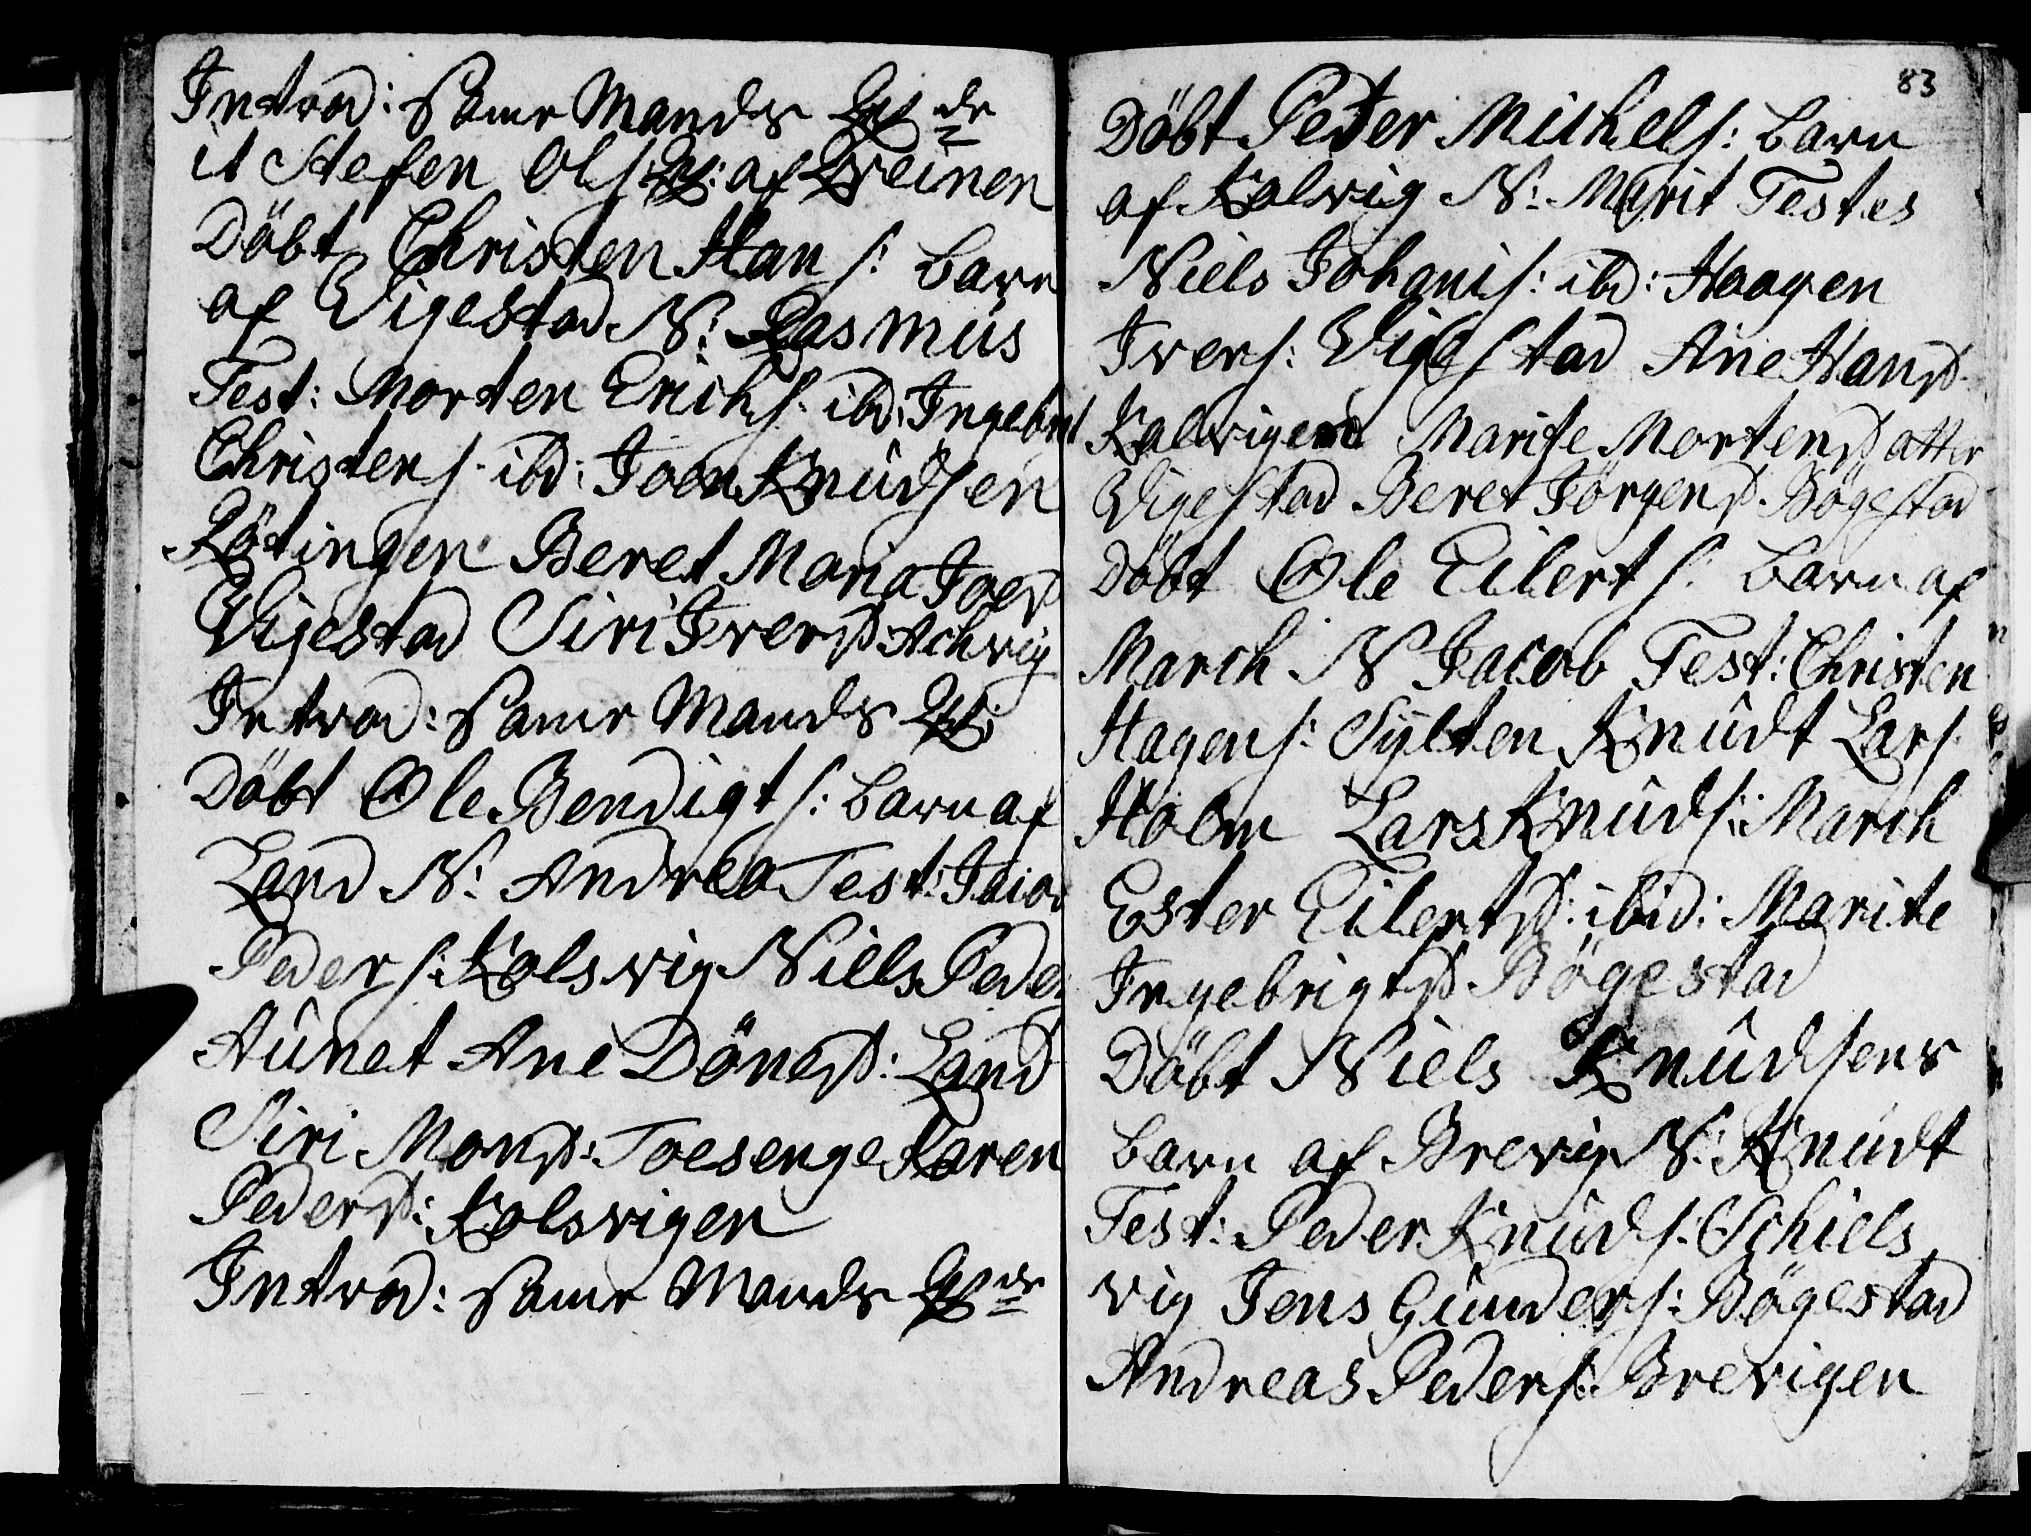 Introd: Same Mands Qv:de
it Stefen Ols: Qv: af Qveinen
Döbt Christen Han s: barn
af Vigestad N: Rasmus
Test: Morten Erichs: ibd: Ingebrit
Christens: ibd: Joen Knûdsen
Rötingen Beret Maria Joesd
Vigestad Siri Iversd: Achvig
Introd: Same Mands Qv:
Döbt Ole Bendigts: barn af
Land N: Andrea Test: Jacob
Peders: Kolsvig Niels Peder
Aûnet Ane Dönesd: Land
Siri Monsd: Toesenge Karen
Pedersd: Kolsvigen
Introd: Same Mands Qv:de
83
Döbt Peter Michels: barn
af Kalvig N: Marit Testes
Niels Johanis: ibd: Haagen
Ivers: Vigestad Ane Hansd.
Kalvigen Marite Mortensdatter
Vigestad Beret Jörgensd. Bögestad
Döbt Ole Eilerts: barn af
March N Jacob Test: Christen
Hagens: Sylten Knûdt Lars.
Holm Lars Knûds: March
Ester Eilertsd: ibid: Marite
Ingebrigtsd. Bögestad
Döbt Niels Knûdsens
barn af Brevig N: Knûdt
Test: Peder Knûds: Schiels
vig Jens Gunders: Bögestad
Andreas Peders: Brevigen